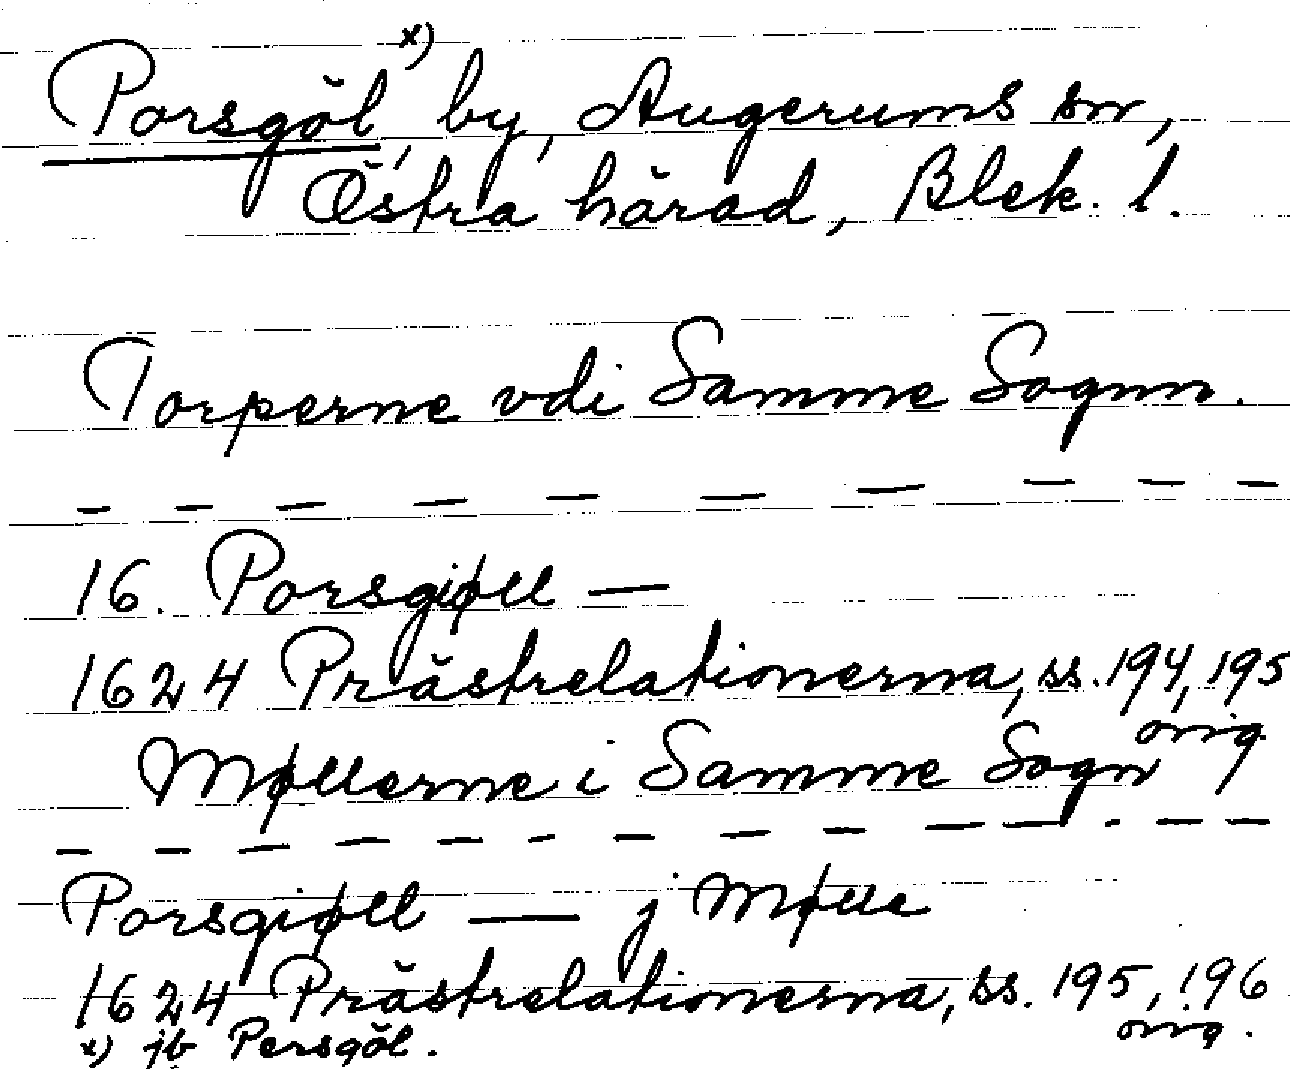 Porsgöl, x) by, Augerums sn,
Östra härad, Blek. l.
Torperne vdi Samme Sognn.
— — — — — — — — — —
16. Porsgiøll —
1624 Prästrelationerna, ss. 194, 195
orig
Møllerne i Samme Sogn
— — — — — — — — — — — — —
Porsgiøll — j Mølle
1624 Prästrelationerna, ss. 195, 196
orig.
x) jb Persgöl.